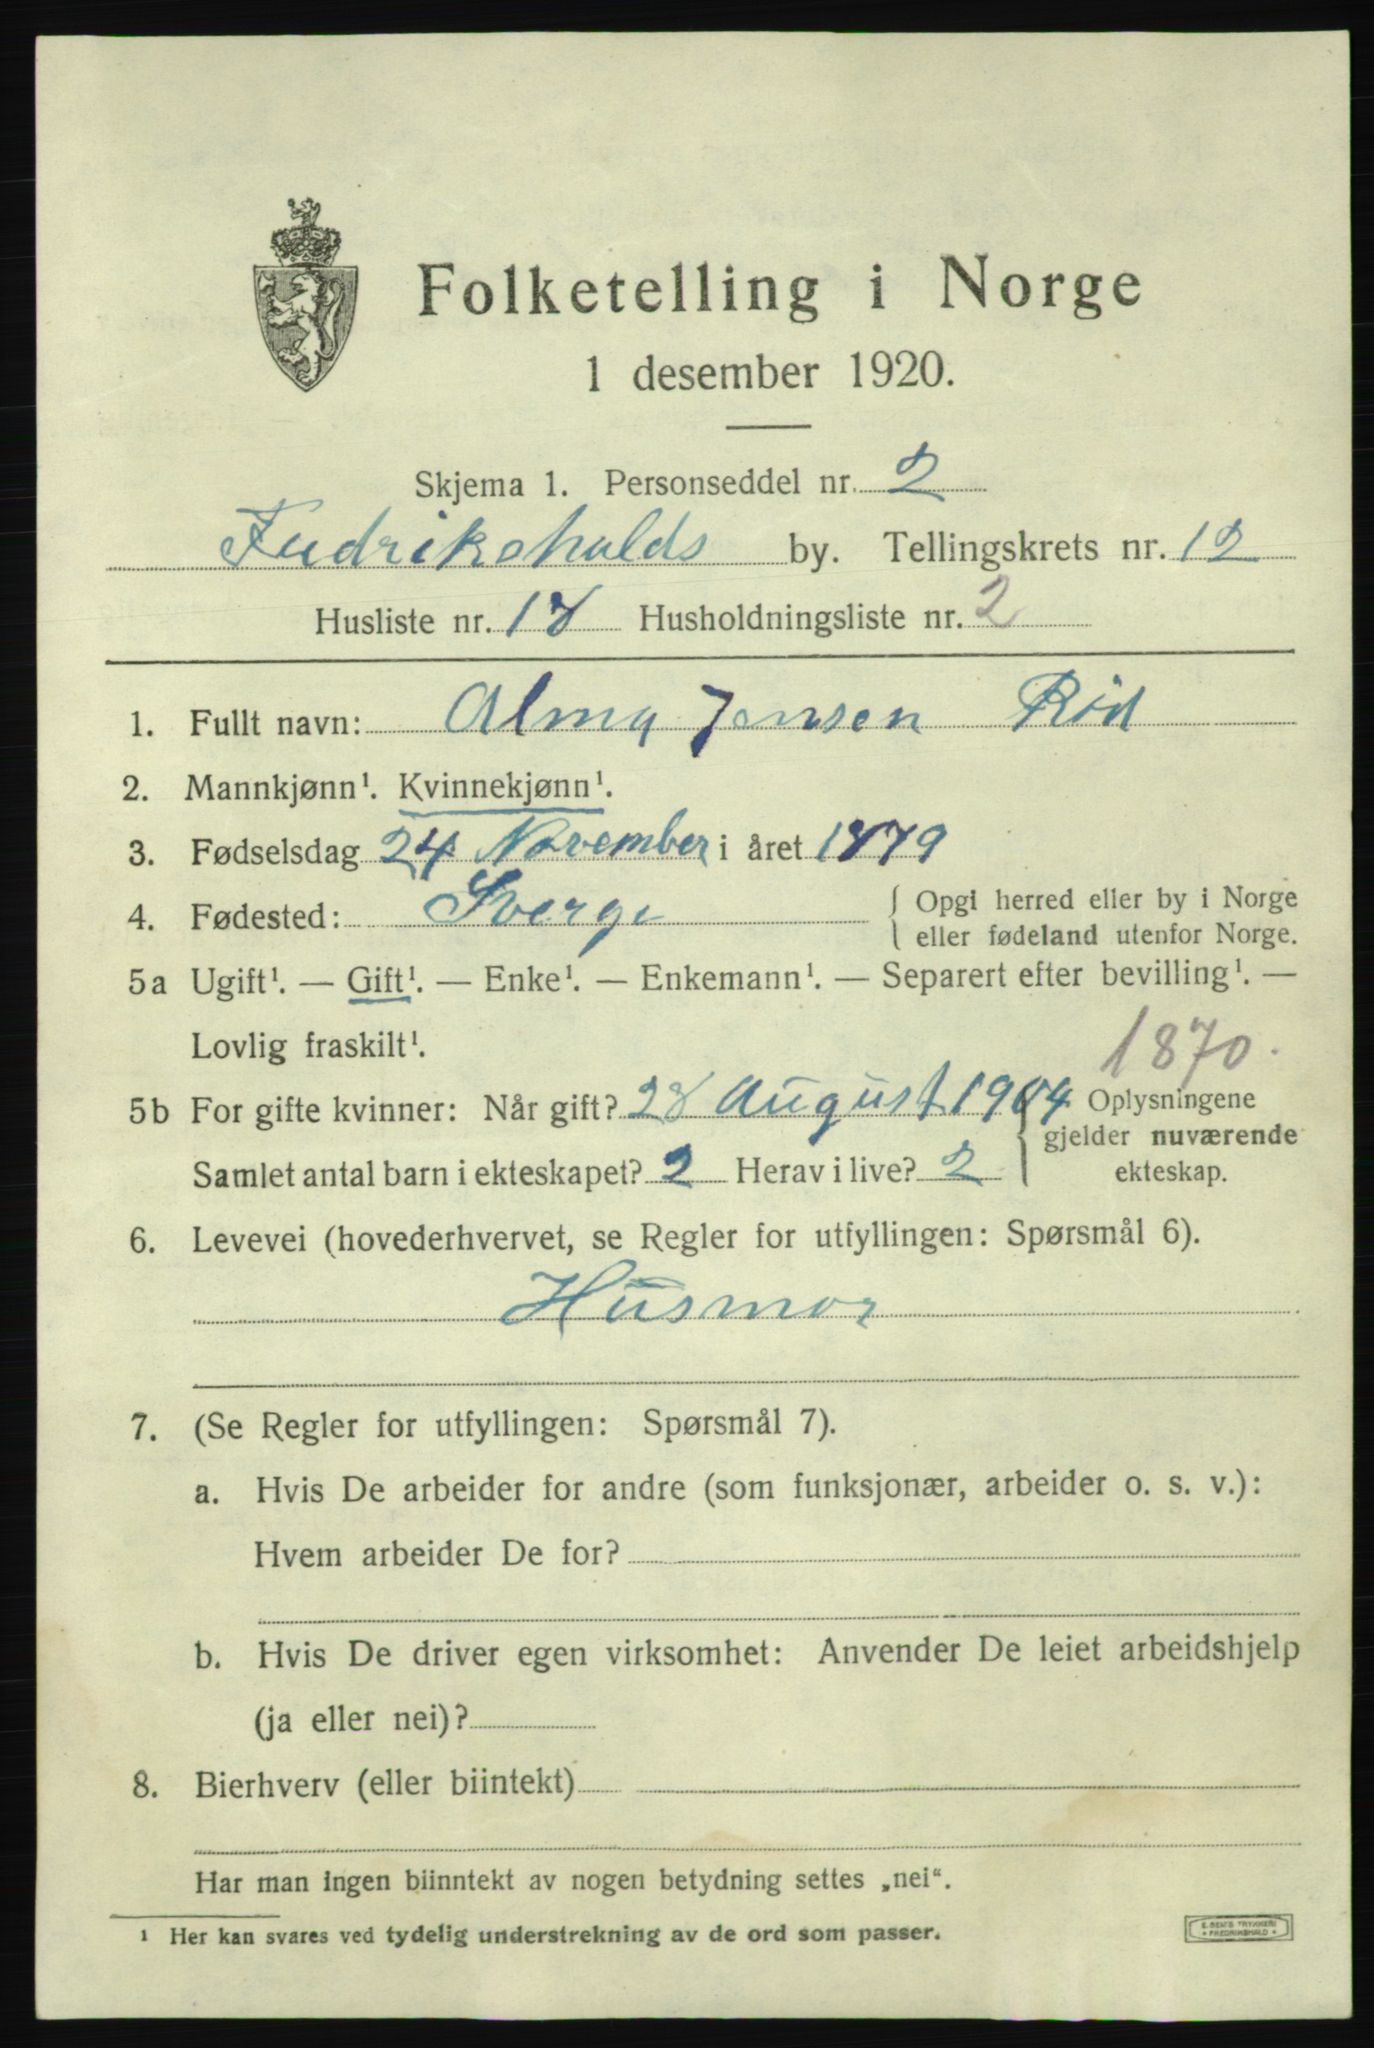 Folketelling i Norge
1 desember 1920.
Skjema 1. Personseddel nr. 2
Fredrikshalds by. Tellingskrets nr. 12
Husliste nr. 18 Husholdningsliste nr. 2
1. Fullt navn: Alma Jensen Rød
2. Mannkjønn¹. Kvinnekjønn¹.
3. Fødselsdag 24 November i året 1879
4. Fødested: Sverge { Opgi herred eller by i Norge
eller fødeland utenfor Norge.
5a Ugift¹. — Gift¹. — Enke¹. — Enkemann¹. — Separert efter bevilling¹. —
Lovlig fraskilt¹.
1870.
5b For gifte kvinner: Når gift? 28 August 1904 { Oplysningene
gjelder nuværende
Samlet antal barn i ekteskapet? 2 Herav i live? 2 ekteskap.
6. Levevei (hovederhvervet, se Regler for utfyllingen: Spørsmål 6).
Husmor
7. (Se Regler for utfyllingen: Spørsmål 7).
a. Hvis De arbeider for andre (som funksjonær, arbeider o. s. v.):
Hvem arbeider De for?
b. Hvis De driver egen virksomhet: Anvender De leiet arbeidshjelp
(ja eller nei)?
8. Bierhverv (eller biintekt)
Har man ingen biinntekt av nogen betydning settes „nei“.
¹ Her kan svares ved tydelig understrekning av de ord som passer.
E. SEMS TRYKKERI
• FREDRIKSHALD •